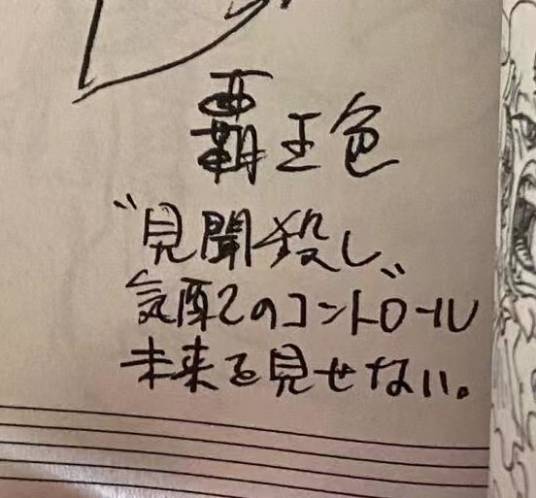 覇王色
“見聞殺し”
気配のコントロール
未来を見せない。